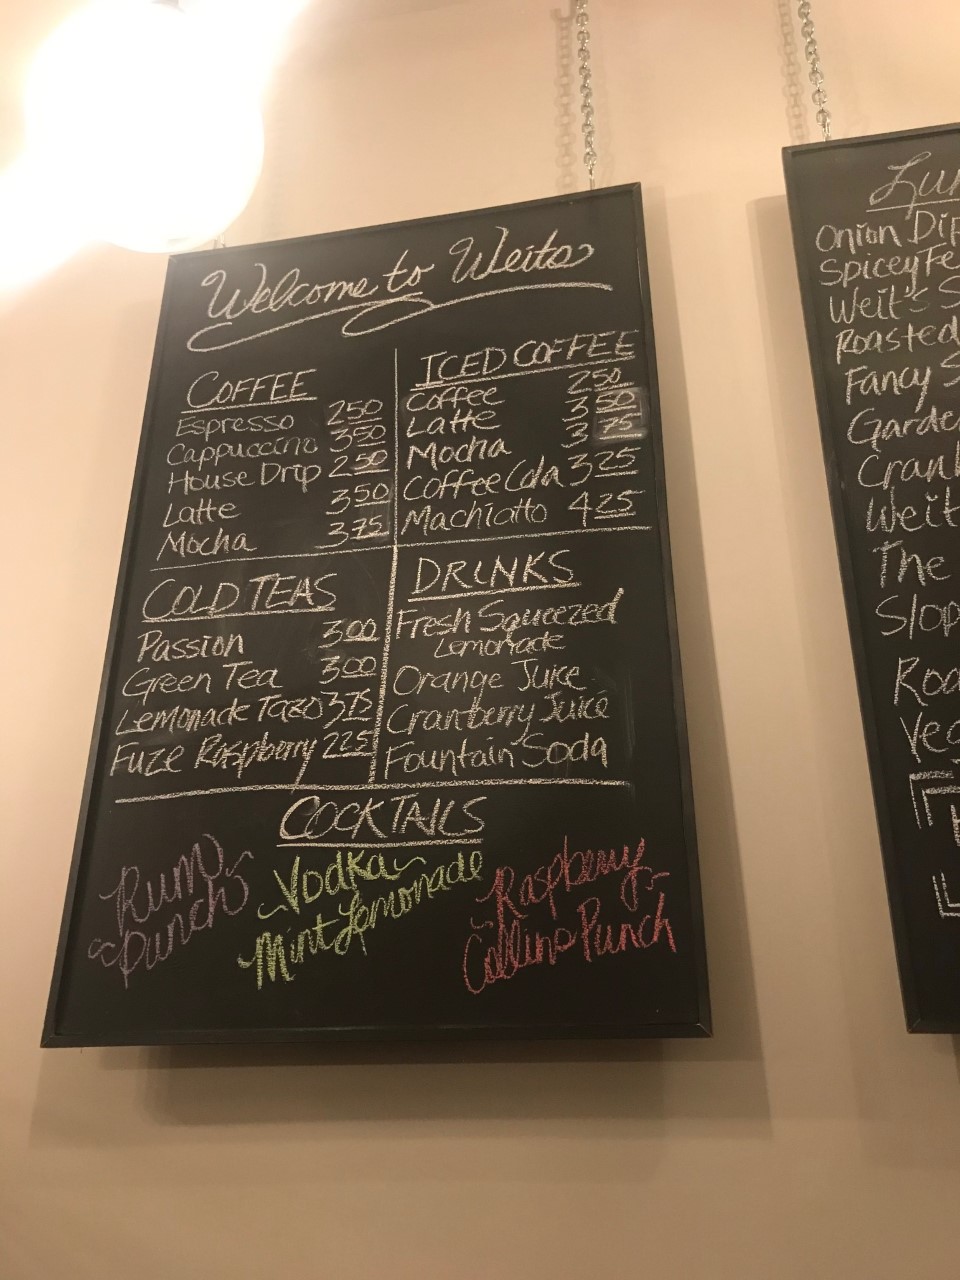 Welcome to Weits
COFFEE
Espresso 2.50
Cappuccino 3.50
House Drip 2.50
Latte 3.50
Mocha 3.75
ICED COFFEE
Coffee 2.50
Latte 3.50
Mocha 3.75
Coffee Cola 3.25
Machiatto 4.25
COLD TEAS
Passion 3.00
Green Tea 3.00
Lemonade Tazo 3.75
Fuze Raspberry 2.25
DRINKS
Fresh Squeezed
Lemonade
Orange Juice
Cranberry Juice
Fountain Soda
COCKTAILS
Rum
Punch
Vodka
Mint Lemonade
Raspberry
Collins Punch
Onion Dip
Spicey Fe
Weit's S
Roasted
Fancy S
Garde
Cran
Weit
The
Slop
Roa
Veg